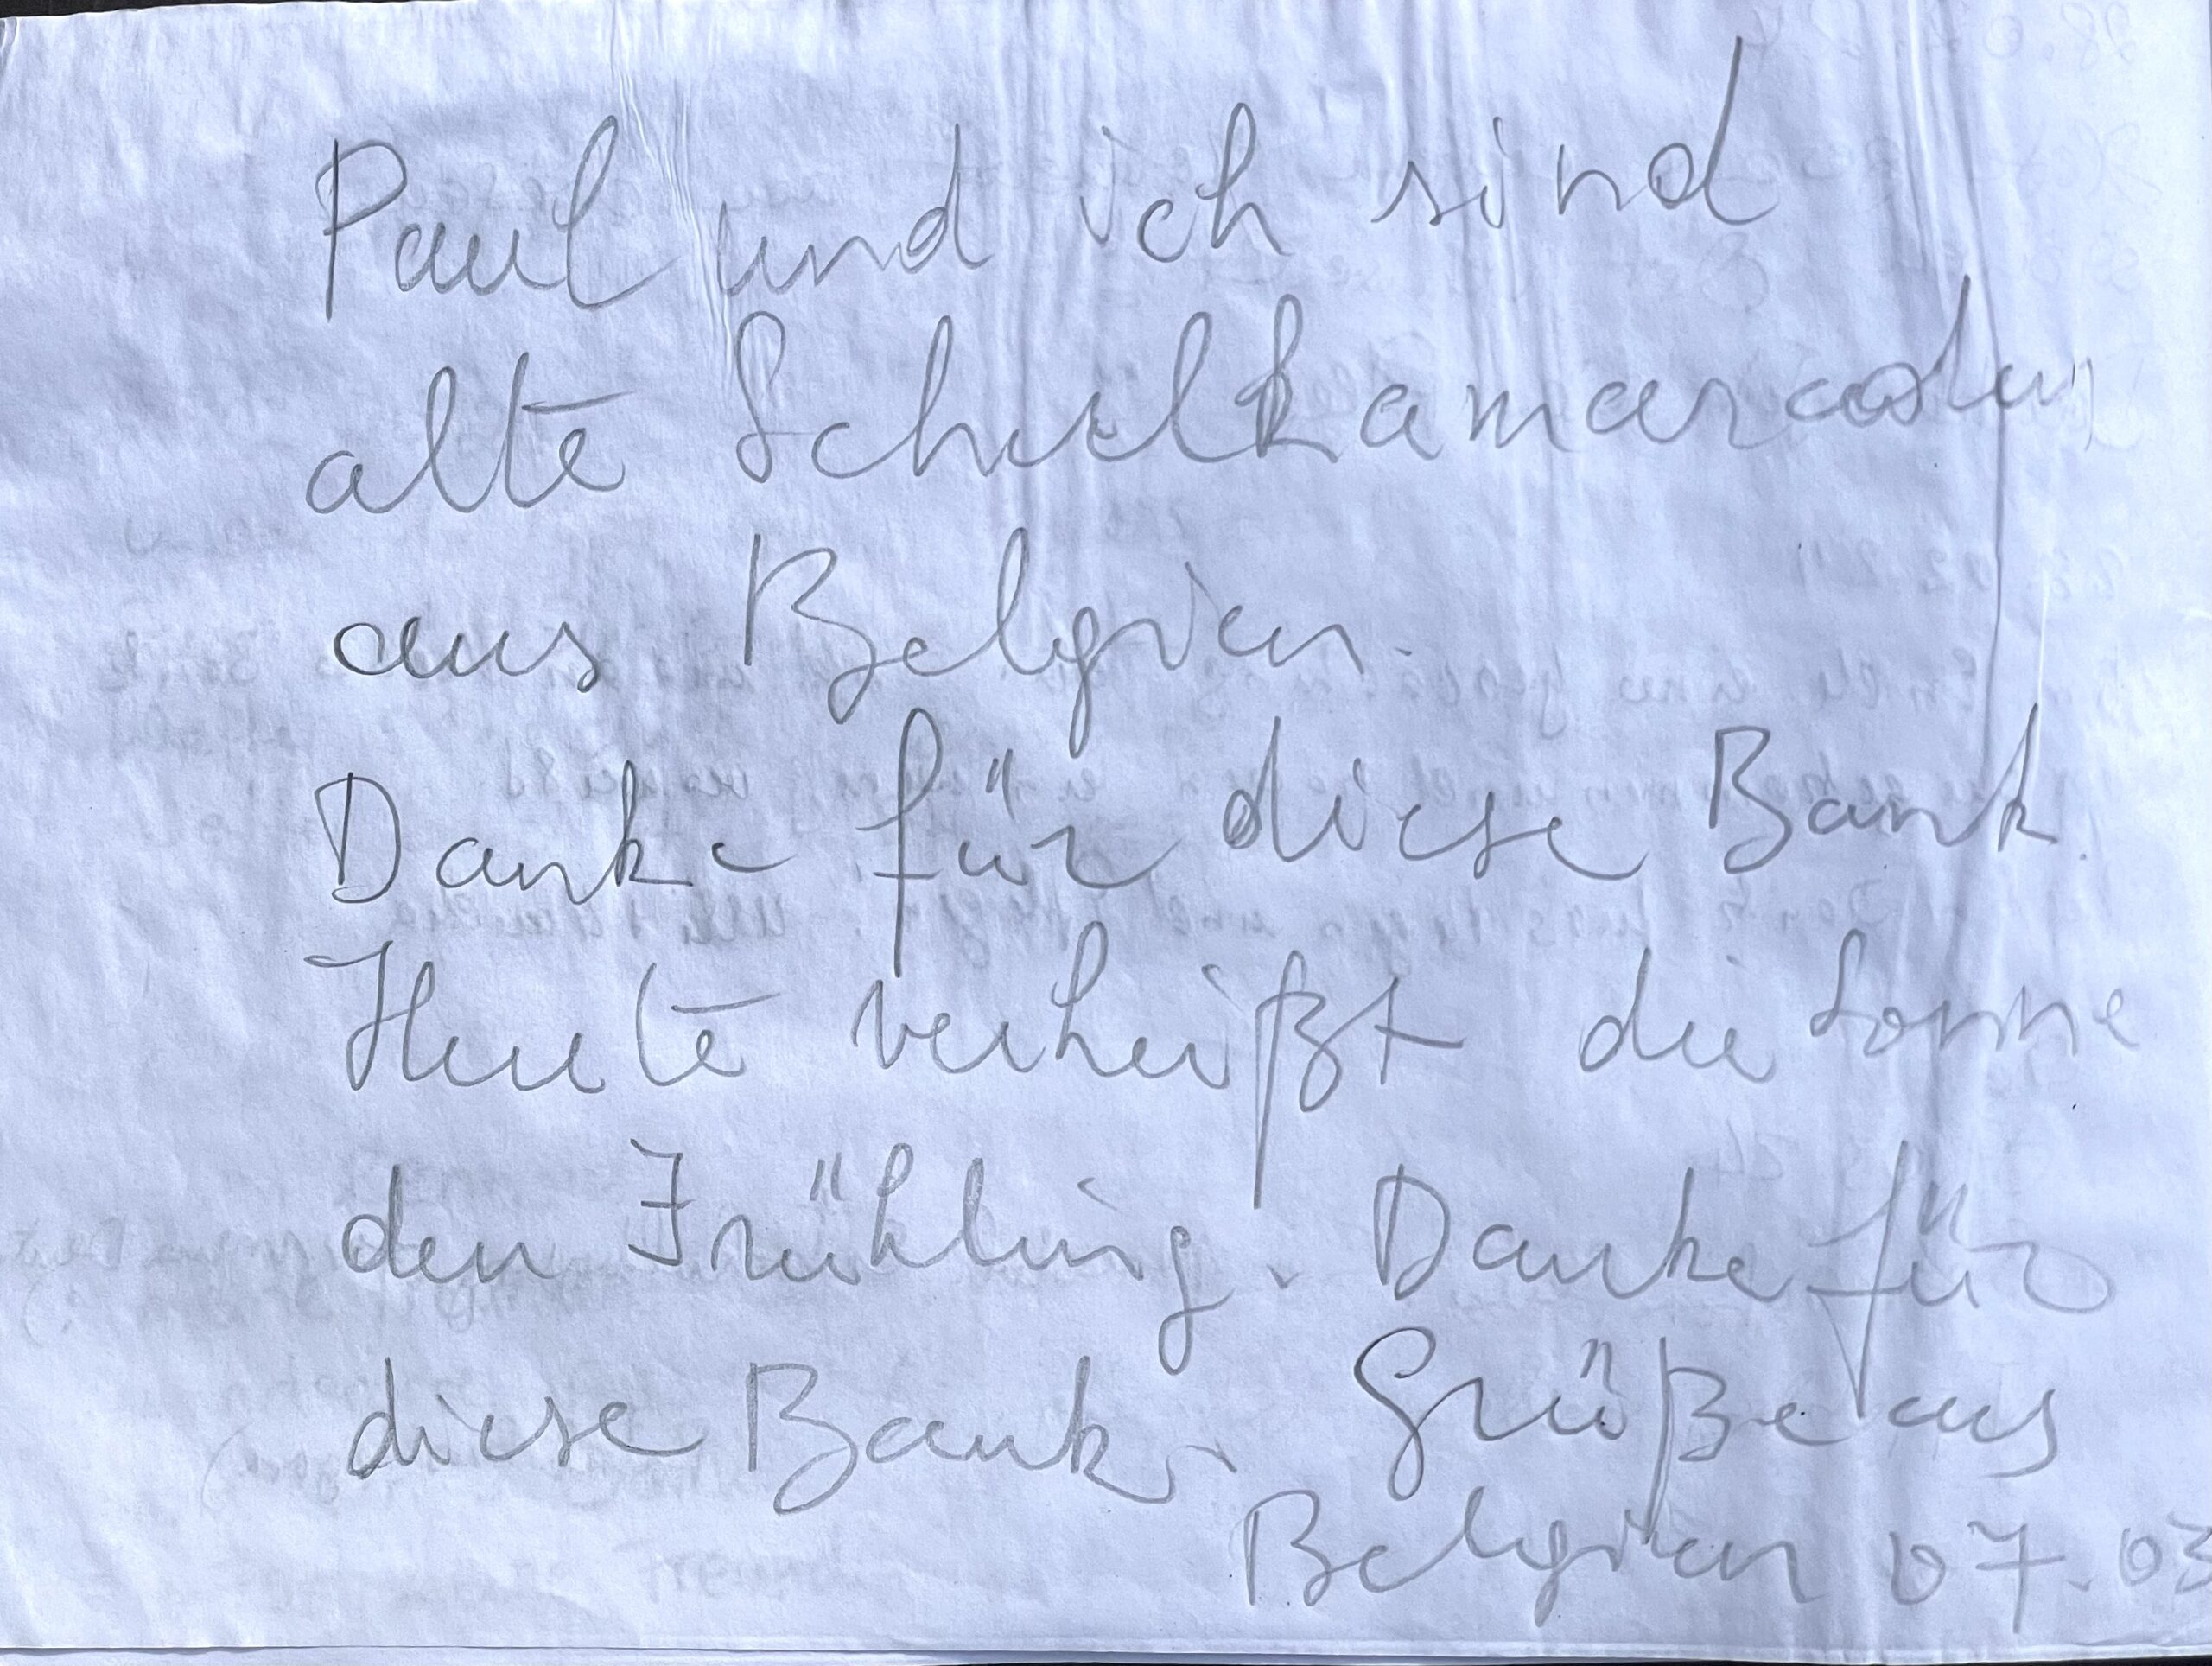 Paul und ich sind
alte Schulkamaraden
aus Belgien.
Danke für diese Bank.
Heute verheißt die Sonne
den Frühling. Danke für
diese Bank. Grüße aus
Belgien 07.03